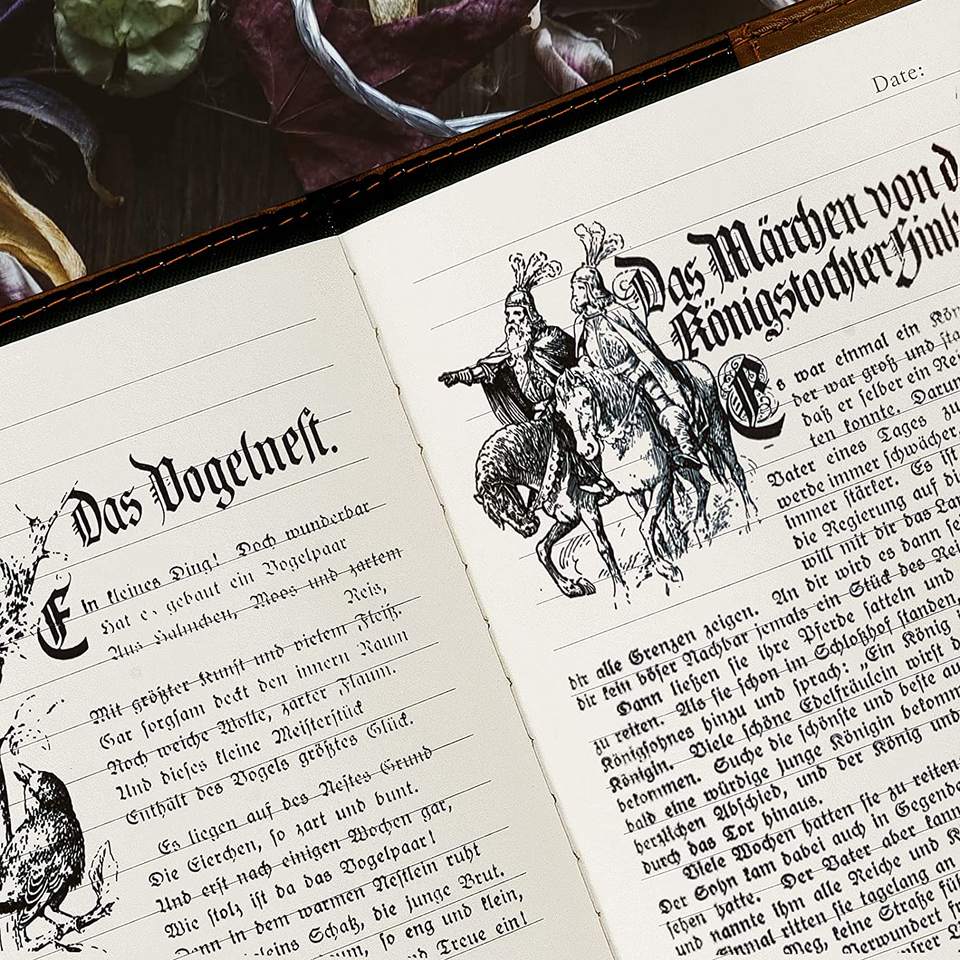 Das Vogelnest.
Ein kleines Ding! Doch wunderbar
Hat es gebaut ein Vogelpaar
Aus Hälmchen, Moos und zartem
Reis,
Mit größter Kunst und vielem Fleiß.
Gar sorgsam deckt den innern Raum
Noch weiche Wolle, zarter Flaum.
Und dieses kleine Meisterstück
Enthält des Vogels größtes Glück.
Es liegen auf des Nestes Grund
Die Eierchen, so zart und bunt.
Und erst nach einigen Wochen gar,
Wie stolz ist da das Vogelpaar!
Denn in dem warmen Nestlein ruht
Schatz, die junge Brut.
so eng und klein,
und Treue ein!
Date:
Das Märchen von d
Königstochter Hink
Es war einmal ein Kön
der war groß und sta
daß er selber ein Rei
ten konnte. Darum
Vater eines Tages zu
werde immer schwächer,
immer stärker. Es ist
die Regierung auf di
will mit dir das Lan
dir alle Grenzen zeigen. An dir wird es dann se
dir kein böser Nachbar jemals ein Stück des Rei
Dann ließen sie ihre Pferde satteln und
zu reiten. Als sie schon im Schloßhof standen,
Königsohnes hinzu und sprach: „Ein König
Königin. Viele schöne Edelfräulein wirst d
bekommen. Suche die schönste und beste au
bald eine würdige junge Königin bekomm
herzlichen Abschied, und der König und
durch das Tor hinaus.
Viele Wochen hatten sie zu reiten
Der Sohn kam dabei auch in Gegende
sehen hatte. Der Vater aber kann
und nannte ihm alle Reiche und K
Einmal ritten sie tagelang an
Weg, keine Straße fü
Verwundert